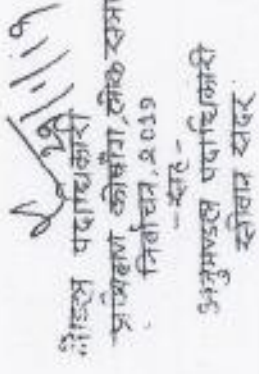 29/1/19
नोडल पदाधिकारी
प्रशिक्षण कोषांग, लोक सभा
निर्वाचन, 2019
-सह-
अनुमण्डल पदाधिकारी
सीवान सदर